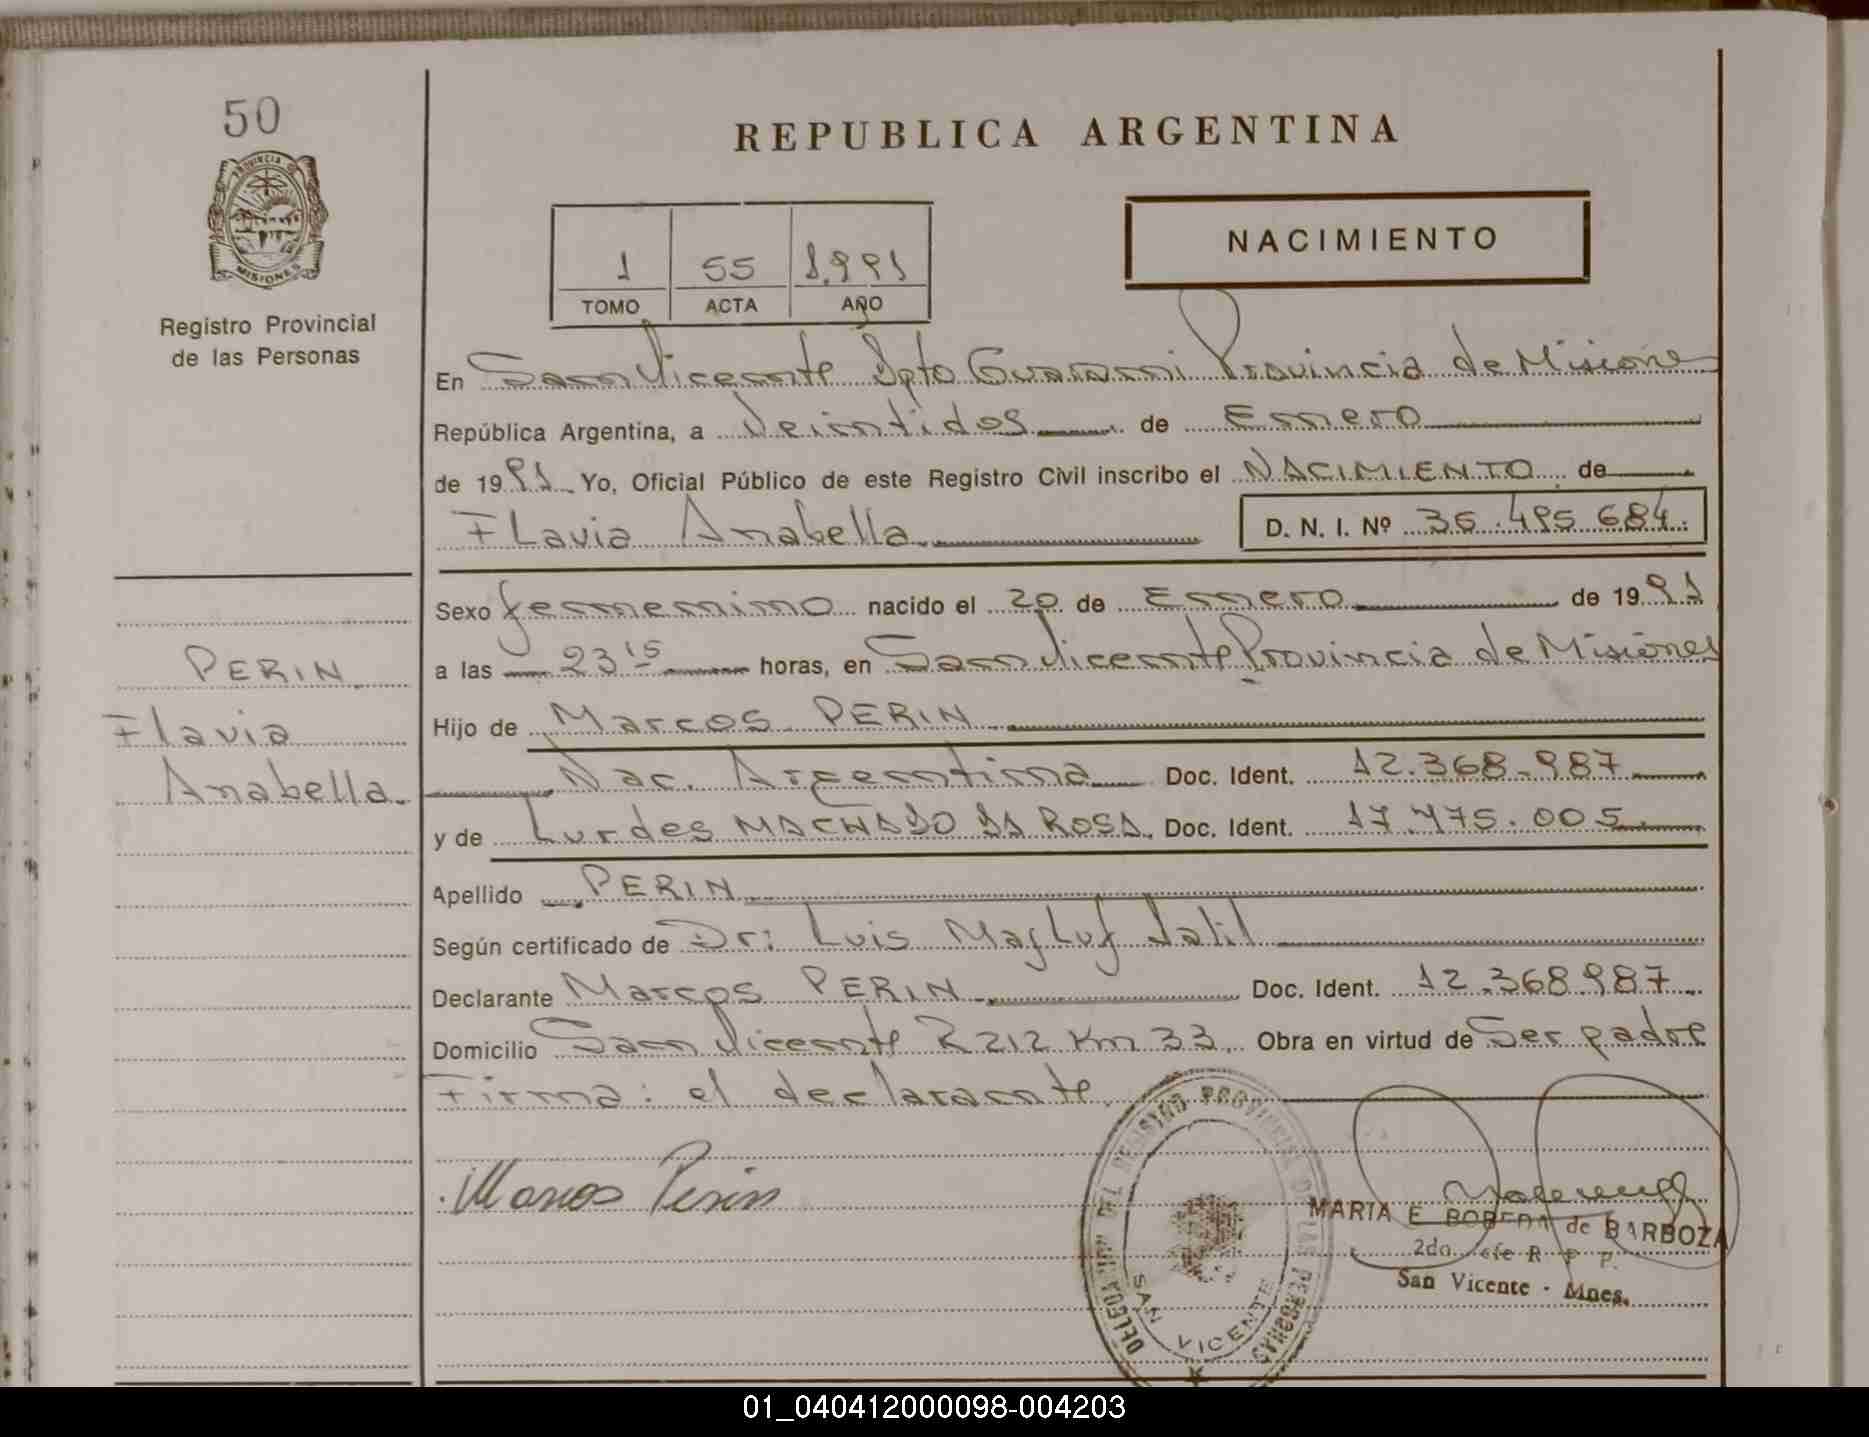 50
PROVINCIA DE
MISIONES
Registro Provincial
de las Personas
REPUBLICA ARGENTINA
NACIMIENTO
1 55 1.991
TOMO ACTA AÑO
En San Vicente Dpto Guarani Provincia de Misiones
República Argentina, a Veintidos de Enero
de 1991 Yo, Oficial Público de este Registro Civil inscribo el NACIMIENTO de
Flavia Anabella D. N. I. Nº 35.495.684.
Sexo femenino nacido el 20 de Enero de 1991
a las 23 15 horas, en San Vicente Provincia de Misiones
Hijo de Marcos PERIN
Nac. Argentina Doc. Ident. 12.368.987
y de Lurdes MACHADO DA ROSA. Doc. Ident. 17.475.005
Apellido PERIN
Según certificado de Dr: Luis Majluf Jalil
Declarante Marcos PERIN Doc. Ident. 12.368.987
Domicilio San Vicente R 212 Km 33. Obra en virtud de Ser padre
Firma: el declarante.
PERIN
Flavia
Anabella.
Marcos Perin
DEL REGISTRO PROVINCIAL DE LAS PERSONAS
SAN VICENTE
MARIA E. BOBEDA de BARBOZA
2do. R P P.
San Vicente - Mnes.
01_040412000098-004203